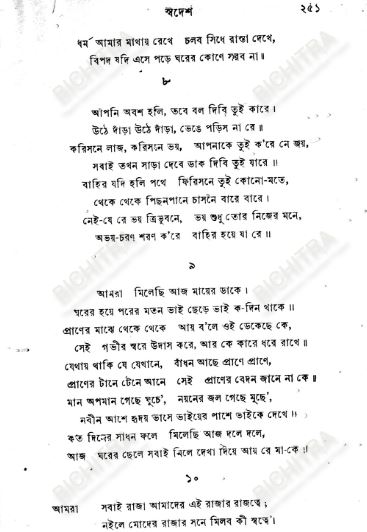 স্বদেশ ২৫১
ধর্ম আমার মাথায় রেখে চলব সিধে রাস্তা দেখে,
বিপদ যদি এসে পড়ে ঘরের কোণে সরব না॥
৮
আপনি অবশ হলি, তবে বল দিবি তুই কারে।
উঠে দাঁড়া উঠে দাঁড়া, ভেঙে পড়িস না রে॥
করিসনে লাজ, করিসনে ভয়, আপনাকে তুই ক'রে নে জয়,
সবাই তখন সাড়া দেবে ডাক দিবি তুই যারে॥
বাহির যদি হলি পথে ফিরিসনে তুই কোনো-মতে,
থেকে থেকে পিছনপানে চাসনে বারে বারে।
নেই-যে রে ভয় ত্রিভুবনে, ভয় শুধু তোর নিজের মনে,
অভয়-চরণ শরণ ক'রে বাহির হয়ে যা রে॥
৯
আমরা মিলেছি আজ মায়ের ডাকে।
ঘরের হয়ে পরের মতন ভাই ছেড়ে ভাই ক-দিন থাকে॥
প্রাণের মাঝে থেকে থেকে আয় ব'লে ওই ডেকেছে কে,
সেই গভীর স্বরে উদাস করে, আর কে কারে ধরে রাখে॥
যেথায় থাকি যে যেখানে, বাঁধন আছে প্রাণে প্রাণে,
প্রাণের টানে টেনে আনে সেই প্রাণের বেদন জানে না কে॥
মান অপমান গেছে ঘুচে, নয়নের জল গেছে মুছে,
নবীন আশে হৃদয় ভাসে ভাইয়ের পাশে ভাইকে দেখে॥
কত দিনের সাধন ফলে মিলেছি আজ দলে দলে,
আজ ঘরের ছেলে সবাই মিলে দেখা দিয়ে আয় রে মা-কে॥
১০
আমরা সবাই রাজা আমাদের এই রাজার রাজত্বে;
নইলে মোদের রাজার সনে মিলব কী স্বত্বে।
BICHITRA